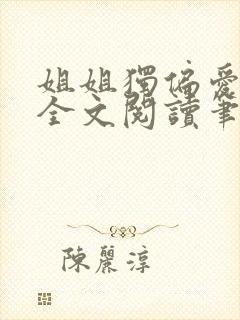 姐姐獨偏愛
全文閱讀筆
陳麗淳